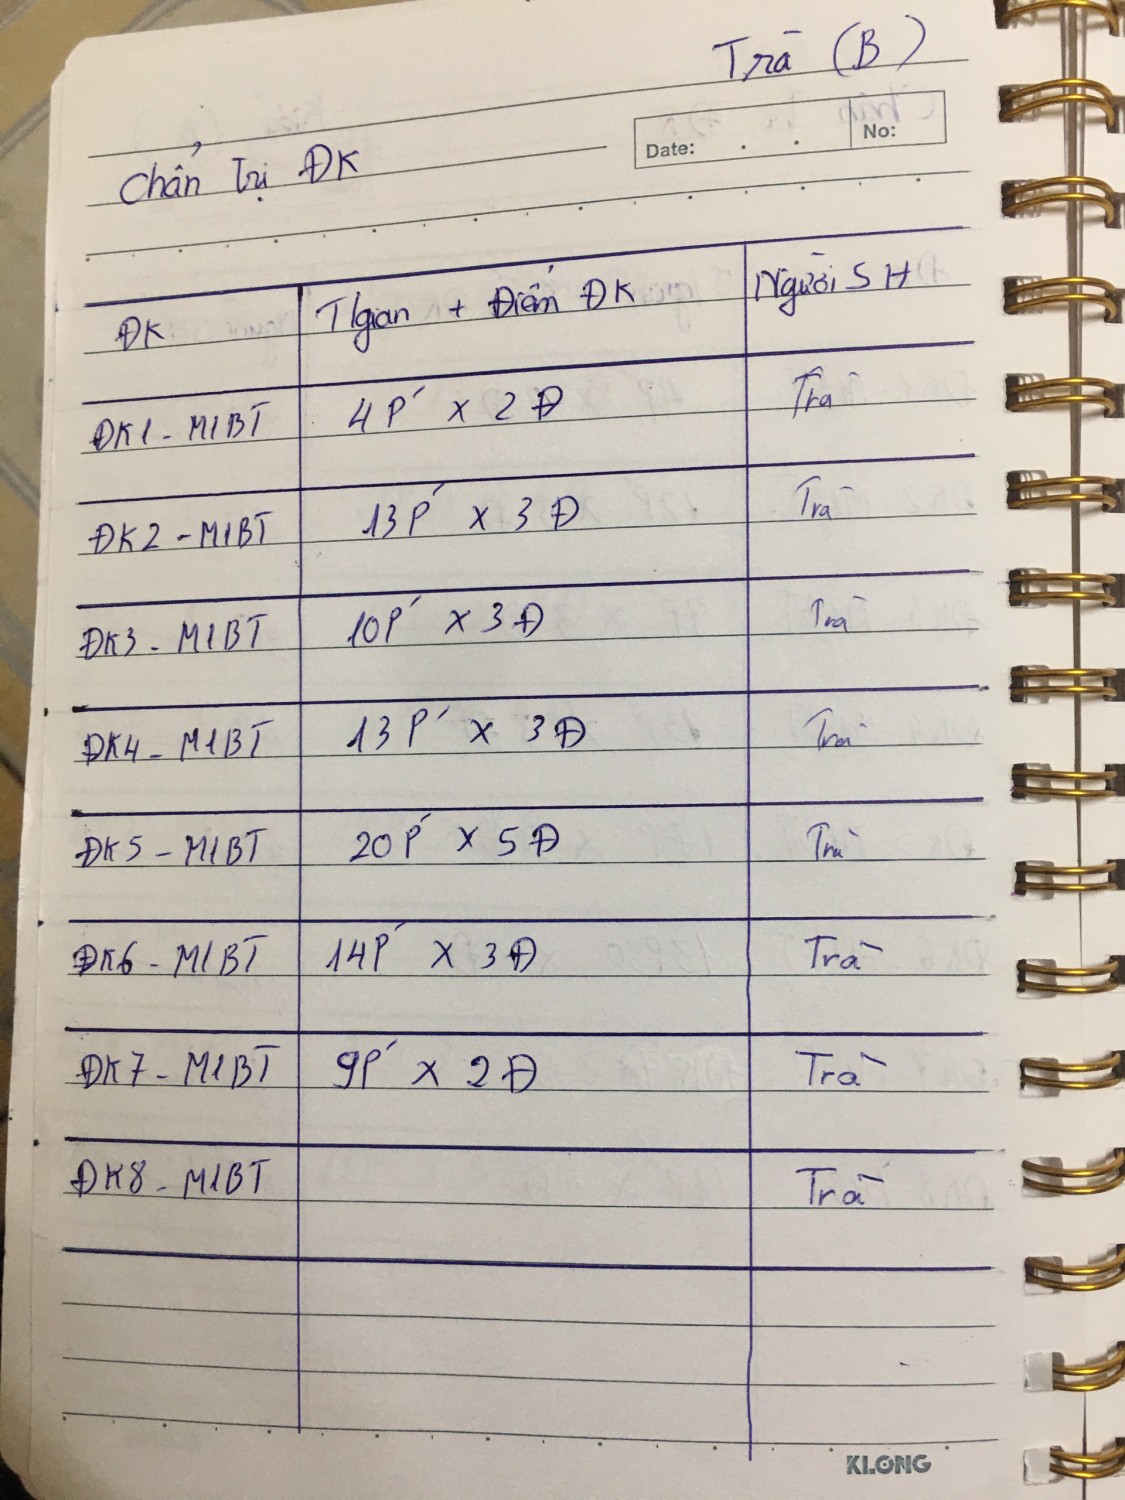 Trà (B)
Date: . . No:
Chẩn trị ĐK
ĐK T/gian + Điểm ĐK Người SH
ĐK1 - M1BT 4P' x 2Đ Trà
ĐK2 - M1BT 13P' x 3Đ Trà
ĐK3 - M1BT 10P' x 3Đ Trà
ĐK4 - M1BT 13P' x 3Đ Trà
ĐK5 - M1BT 20P' x 5Đ Trà
ĐK6 - M1BT 14P' x 3Đ Trà
ĐK7 - M1BT 9P' x 2Đ Trà
ĐK8 - M1BT Trà
KLONG